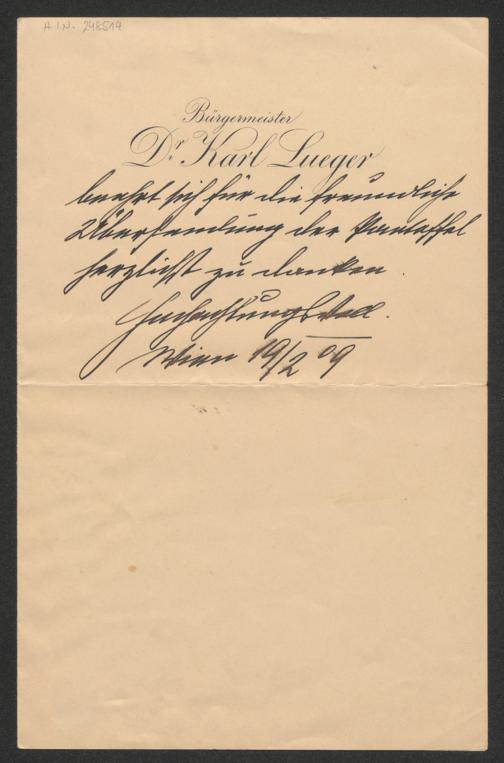 H.I.N. 248514
Bürgermeister
Dr Karl Lueger
beehrt sich für die freundliche
Übersendung der
herzlichst zu danken.
Hochachtungsvoll.
Wien 19/2 09